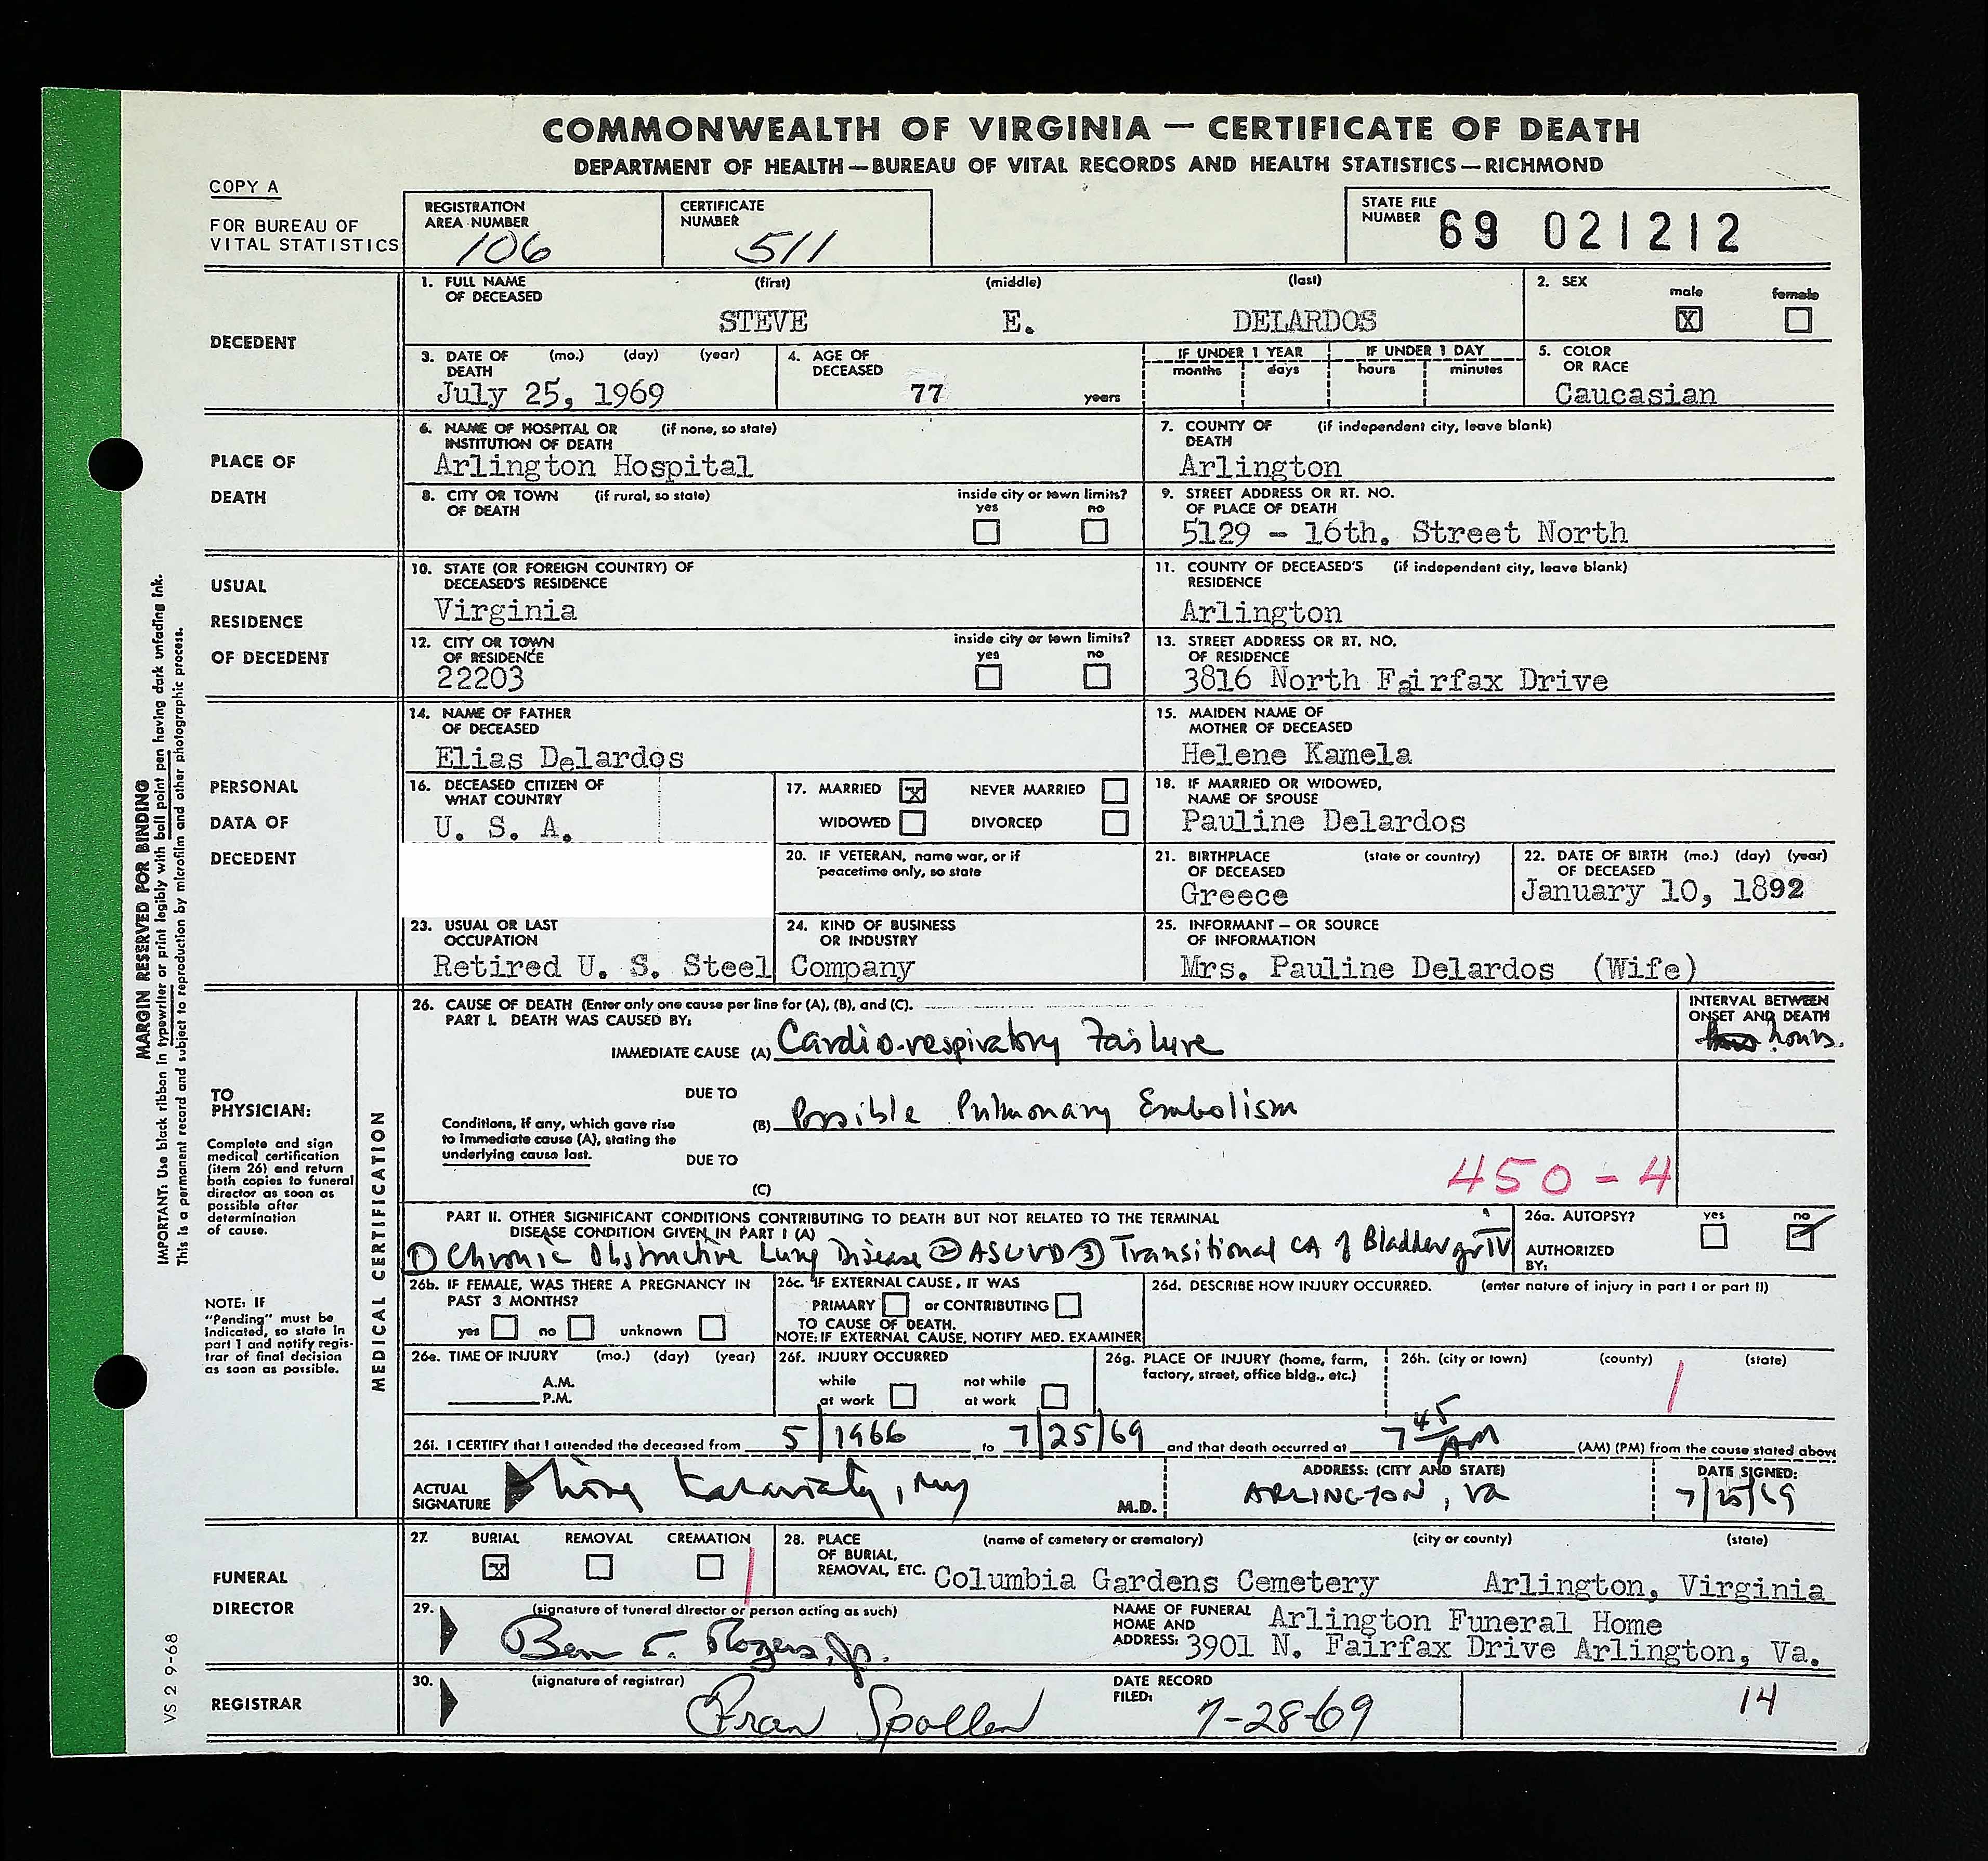 COMMONWEALTH OF VIRGINIA — CERTIFICATE OF DEATH
DEPARTMENT OF HEALTH—BUREAU OF VITAL RECORDS AND HEALTH STATISTICS—RICHMOND
COPY A
FOR BUREAU OF
VITAL STATISTICS
REGISTRATION
AREA NUMBER
106
CERTIFICATE
NUMBER
511
STATE FILE
NUMBER 69 021212
DECEDENT
1. FULL NAME (first) (middle) (last)
OF DECEASED
STEVE E. DELARDOS
2. SEX
male female
X
3. DATE OF (mo.) (day) (year)
DEATH
July 25, 1969
4. AGE OF
DECEASED
77 years
IF UNDER 1 YEAR IF UNDER 1 DAY
months days hours minutes
5. COLOR
OR RACE
Caucasian
PLACE OF
DEATH
6. NAME OF HOSPITAL OR (if none, so state)
INSTITUTION OF DEATH
Arlington Hospital
7. COUNTY OF (if independent city, leave blank)
DEATH
Arlington
8. CITY OR TOWN (if rural, so state) inside city or town limits?
OF DEATH yes no
9. STREET ADDRESS OR RT. NO.
OF PLACE OF DEATH
5129 - 16th. Street North
USUAL
RESIDENCE
OF DECEDENT
10. STATE (OR FOREIGN COUNTRY) OF
DECEASED'S RESIDENCE
Virginia
11. COUNTY OF DECEASED'S (if independent city, leave blank)
RESIDENCE
Arlington
12. CITY OR TOWN inside city or town limits?
OF RESIDENCE yes no
22203
13. STREET ADDRESS OR RT. NO.
OF RESIDENCE
3816 North Fairfax Drive
PERSONAL
DATA OF
DECEDENT
14. NAME OF FATHER
OF DECEASED
Elias Delardos
15. MAIDEN NAME OF
MOTHER OF DECEASED
Helene Kamela
16. DECEASED CITIZEN OF
WHAT COUNTRY
U. S. A.
17. MARRIED X NEVER MARRIED
WIDOWED DIVORCED
18. IF MARRIED OR WIDOWED,
NAME OF SPOUSE
Pauline Delardos
20. IF VETERAN, name war, or if
peacetime only, so state
21. BIRTHPLACE (state or country)
OF DECEASED
Greece
22. DATE OF BIRTH (mo.) (day) (year)
OF DECEASED
January 10, 1892
23. USUAL OR LAST
OCCUPATION
Retired U. S. Steel
24. KIND OF BUSINESS
OR INDUSTRY
Company
25. INFORMANT — OR SOURCE
OF INFORMATION
Mrs. Pauline Delardos (Wife)
MARGIN RESERVED FOR BINDING
IMPORTANT: Use black ribbon in typewriter or print legibly with ball point pen having dark unfading ink.
This is a permanent record and subject to reproduction by microfilm and other photographic process.
TO
PHYSICIAN:
Complete and sign
medical certification
(item 26) and return
both copies to funeral
director as soon as
possible after
determination
of cause.
NOTE: IF
"Pending" must be
indicated, so state in
part 1 and notify regis-
trar of final decision
as soon as possible.
MEDICAL CERTIFICATION
26. CAUSE OF DEATH (Enter only one cause per line for (A), (B), and (C).
PART I. DEATH WAS CAUSED BY:
IMMEDIATE CAUSE (A) Cardio-respiratory Failure
INTERVAL BETWEEN
ONSET AND DEATH
hours.
DUE TO
Conditions, if any, which gave rise
to immediate cause (A), stating the
underlying cause last.
(B) Possible Pulmonary Embolism
DUE TO
(C)
450-4
PART II. OTHER SIGNIFICANT CONDITIONS CONTRIBUTING TO DEATH BUT NOT RELATED TO THE TERMINAL
DISEASE CONDITION GIVEN IN PART I (A)
① Chronic Obstructive Lung Disease ② ASCVD ③ Transitional CA of Bladder gr IV
26a. AUTOPSY? yes no
AUTHORIZED
BY:
26b. IF FEMALE, WAS THERE A PREGNANCY IN
PAST 3 MONTHS?
yes no unknown
26c. IF EXTERNAL CAUSE, IT WAS
PRIMARY or CONTRIBUTING
TO CAUSE OF DEATH.
NOTE: IF EXTERNAL CAUSE, NOTIFY MED. EXAMINER
26d. DESCRIBE HOW INJURY OCCURRED. (enter nature of injury in part I or part II)
26e. TIME OF INJURY (mo.) (day) (year)
A.M.
P.M.
26f. INJURY OCCURRED
while not while
at work at work
26g. PLACE OF INJURY (home, farm,
factory, street, office bldg., etc.)
26h. (city or town) (county) (state)
26i. I CERTIFY that I attended the deceased from 5/1966 to 7/25/69 and that death occurred at 7 45 AM (AM) (PM) from the cause stated above
ACTUAL
SIGNATURE
M.D.
ADDRESS: (CITY AND STATE)
ARLINGTON, VA
DATE SIGNED:
7/25/69
FUNERAL
DIRECTOR
27. BURIAL REMOVAL CREMATION
X
28. PLACE (name of cemetery or crematory) (city or county) (state)
OF BURIAL,
REMOVAL, ETC. Columbia Gardens Cemetery Arlington, Virginia
29. (signature of funeral director or person acting as such)
Ben E. Rogers, Jr.
NAME OF FUNERAL
HOME AND
ADDRESS:
Arlington Funeral Home
3901 N. Fairfax Drive Arlington, Va.
REGISTRAR
30. (signature of registrar)
Fran Spollen
DATE RECORD
FILED:
7-28-69
14
VS 2 9-68